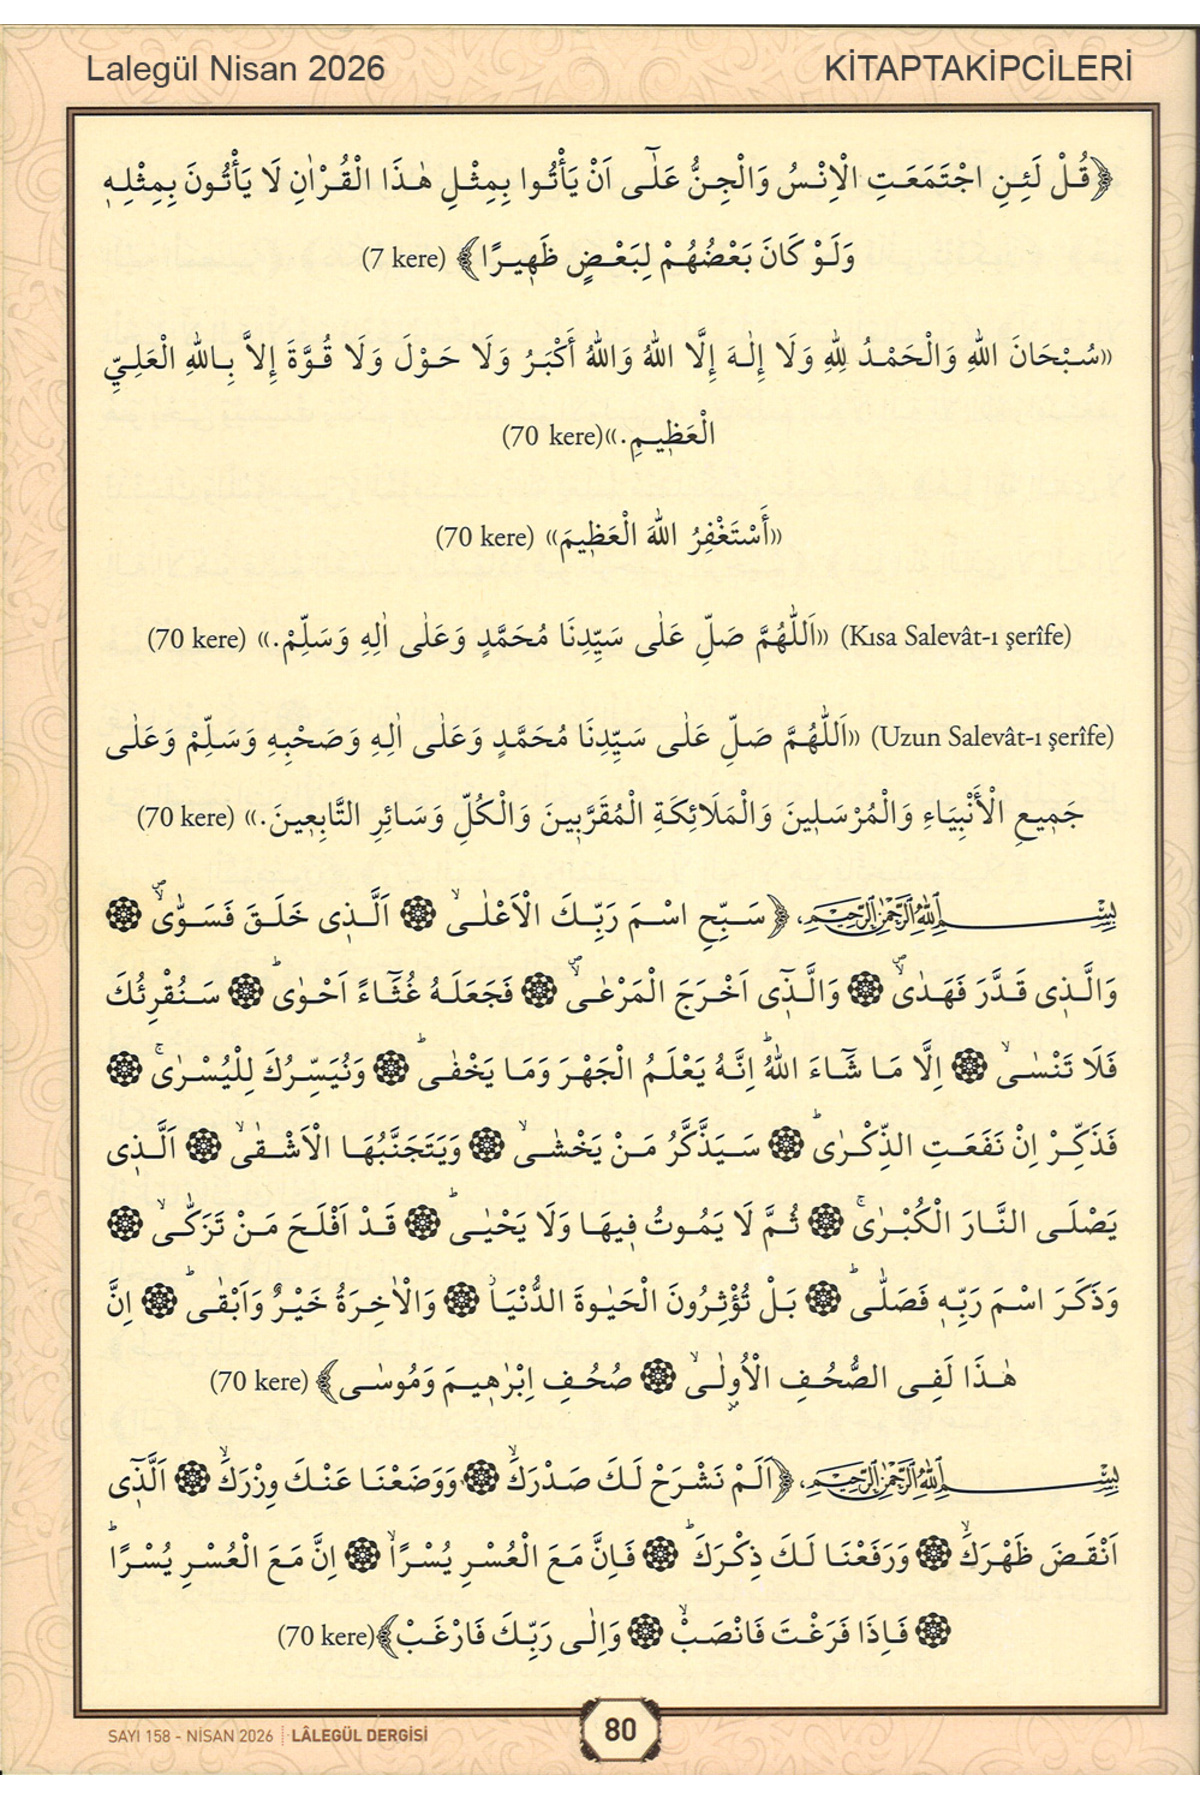 Lalegül Nisan 2026
KİTAPTAKİPCİLERİ
﴿قُلْ لَئِنِ اجْتَمَعَتِ الْاِنْسُ وَالْجِنُّ عَلٰٓى اَنْ يَأْتُوا بِمِثْلِ هٰذَا الْقُرْاٰنِ لَا يَأْتُونَ بِمِثْلِه۪
وَلَوْ كَانَ بَعْضُهُمْ لِبَعْضٍ ظَه۪يرًا﴾ (7 kere)
«سُبْحَانَ اللهِ وَالْحَمْدُ لِلّٰهِ وَلَا إِلٰهَ إِلَّا اللهُ وَاللهُ أَكْبَرُ وَلَا حَوْلَ وَلَا قُوَّةَ إِلاَّ بِاللهِ الْعَلِيِّ
الْعَظ۪يمِ.»(70 kere)
«أَسْتَغْفِرُ اللهَ الْعَظ۪يمَ» (70 kere)
(Kısa Salevât-ı şerîfe) «اَللّٰهُمَّ صَلِّ عَلٰى سَيِّدِنَا مُحَمَّدٍ وَعَلٰى اٰلِهِ وَسَلِّمْ.» (70 kere)
(Uzun Salevât-ı şerîfe) «اَللّٰهُمَّ صَلِّ عَلٰى سَيِّدِنَا مُحَمَّدٍ وَعَلٰى اٰلِهِ وَصَحْبِهِ وَسَلِّمْ وَعَلٰى
جَم۪يعِ الْأَنْبِيَاءِ وَالْمُرْسَل۪ينَ وَالْمَلَائِكَةِ الْمُقَرَّب۪ينَ وَالْكُلِّ وَسَائِرِ التَّابِع۪ينَ.» (70 kere)
بِسْمِ اللهِ الرَّحْمٰنِ الرَّحِيمِ، ﴿سَبِّحِ اسْمَ رَبِّكَ الْاَعْلٰىۙ ۞ اَلَّذ۪ى خَلَقَ فَسَوّٰىۖۙ ۞
وَالَّذ۪ى قَدَّرَ فَهَدٰىۖۙ ۞ وَالَّذ۪ٓى اَخْرَجَ الْمَرْعٰىۖۙ ۞ فَجَعَلَهُ غُثَٓاءً اَحْوٰىۜ ۞ سَنُقْرِئُكَ
فَلَا تَنْسٰىۙ ۞ اِلَّا مَا شَٓاءَ اللهُۜ اِنَّهُ يَعْلَمُ الْجَهْرَ وَمَا يَخْفٰىۜ ۞ وَنُيَسِّرُكَ لِلْيُسْرٰىۚ ۞
فَذَكِّرْ اِنْ نَفَعَتِ الذِّكْرٰىۜ ۞ سَيَذَّكَّرُ مَنْ يَخْشٰىۙ ۞ وَيَتَجَنَّبُهَا الْاَشْقٰىۙ ۞ اَلَّذ۪ى
يَصْلَى النَّارَ الْكُبْرٰىۚ ۞ ثُمَّ لَا يَمُوتُ ف۪يهَا وَلَا يَحْيٰىۜ ۞ قَدْ اَفْلَحَ مَنْ تَزَكّٰىۙ ۞
وَذَكَرَ اسْمَ رَبِّه۪ فَصَلّٰىۜ ۞ بَلْ تُؤْثِرُونَ الْحَيٰوةَ الدُّنْيَاۘ ۞ وَالْاٰخِرَةُ خَيْرٌ وَاَبْقٰىۜ ۞ اِنَّ
هٰذَا لَفِى الصُّحُفِ الْاُو۫لٰىۙ ۞ صُحُفِ اِبْرٰه۪يمَ وَمُوسٰى﴾ (70 kere)
بِسْمِ اللهِ الرَّحْمٰنِ الرَّحِيمِ، ﴿اَلَمْ نَشْرَحْ لَكَ صَدْرَكَۙ ۞ وَوَضَعْنَا عَنْكَ وِزْرَكَۙ ۞ اَلَّذ۪ٓى
اَنْقَضَ ظَهْرَكَۙ ۞ وَرَفَعْنَا لَكَ ذِكْرَكَۜ ۞ فَاِنَّ مَعَ الْعُسْرِ يُسْرًاۙ ۞ اِنَّ مَعَ الْعُسْرِ يُسْرًاۜ
۞ فَاِذَا فَرَغْتَ فَانْصَبْۙ ۞ وَاِلٰى رَبِّكَ فَارْغَبْ﴾(70 kere)
SAYI 158 - NİSAN 2026 | LÂLEGÜL DERGİSİ
80